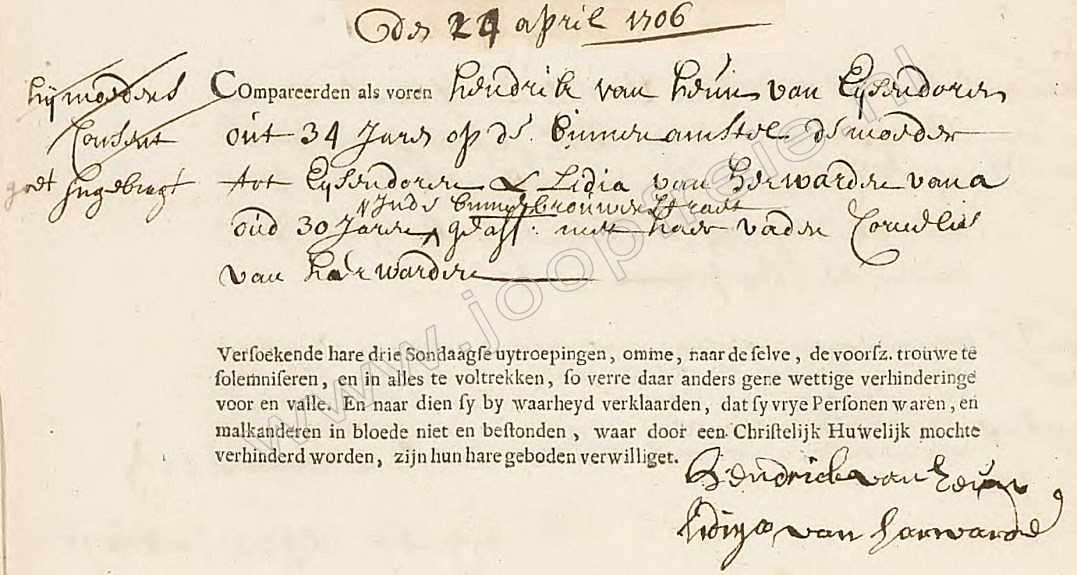 den 24 april 1706
hij moeders
Consent
goet Ingebragt
Compareerden als voren Hendrik van Heun van Eyssendoren
out 34 Jaren op de binnen amstel de moeder
tot Eyssendoren & Lidia van Herwarden van a
Inde binnen brouwerstraet
oud 30 Jaren geass: met haer vader Cornelis
van harwarden
Versoekende hare drie Sondaagse uytroepingen, omme, naar de selve, de voorsz. trouwe te
solemniseren, en in alles te voltrekken, so verre daar anders gene wettige verhinderinge
voor en valle. En naar dien sy by waarheyd verklaarden, dat sy vrye Personen waren, en
malkanderen in bloede niet en bestonden, waar door een Christelijk Huwelijk mochte
verhinderd worden, zijn hun hare geboden verwilliget.
Hendrick van Heun
lidiya van harwarde
www.joopfeien.nl